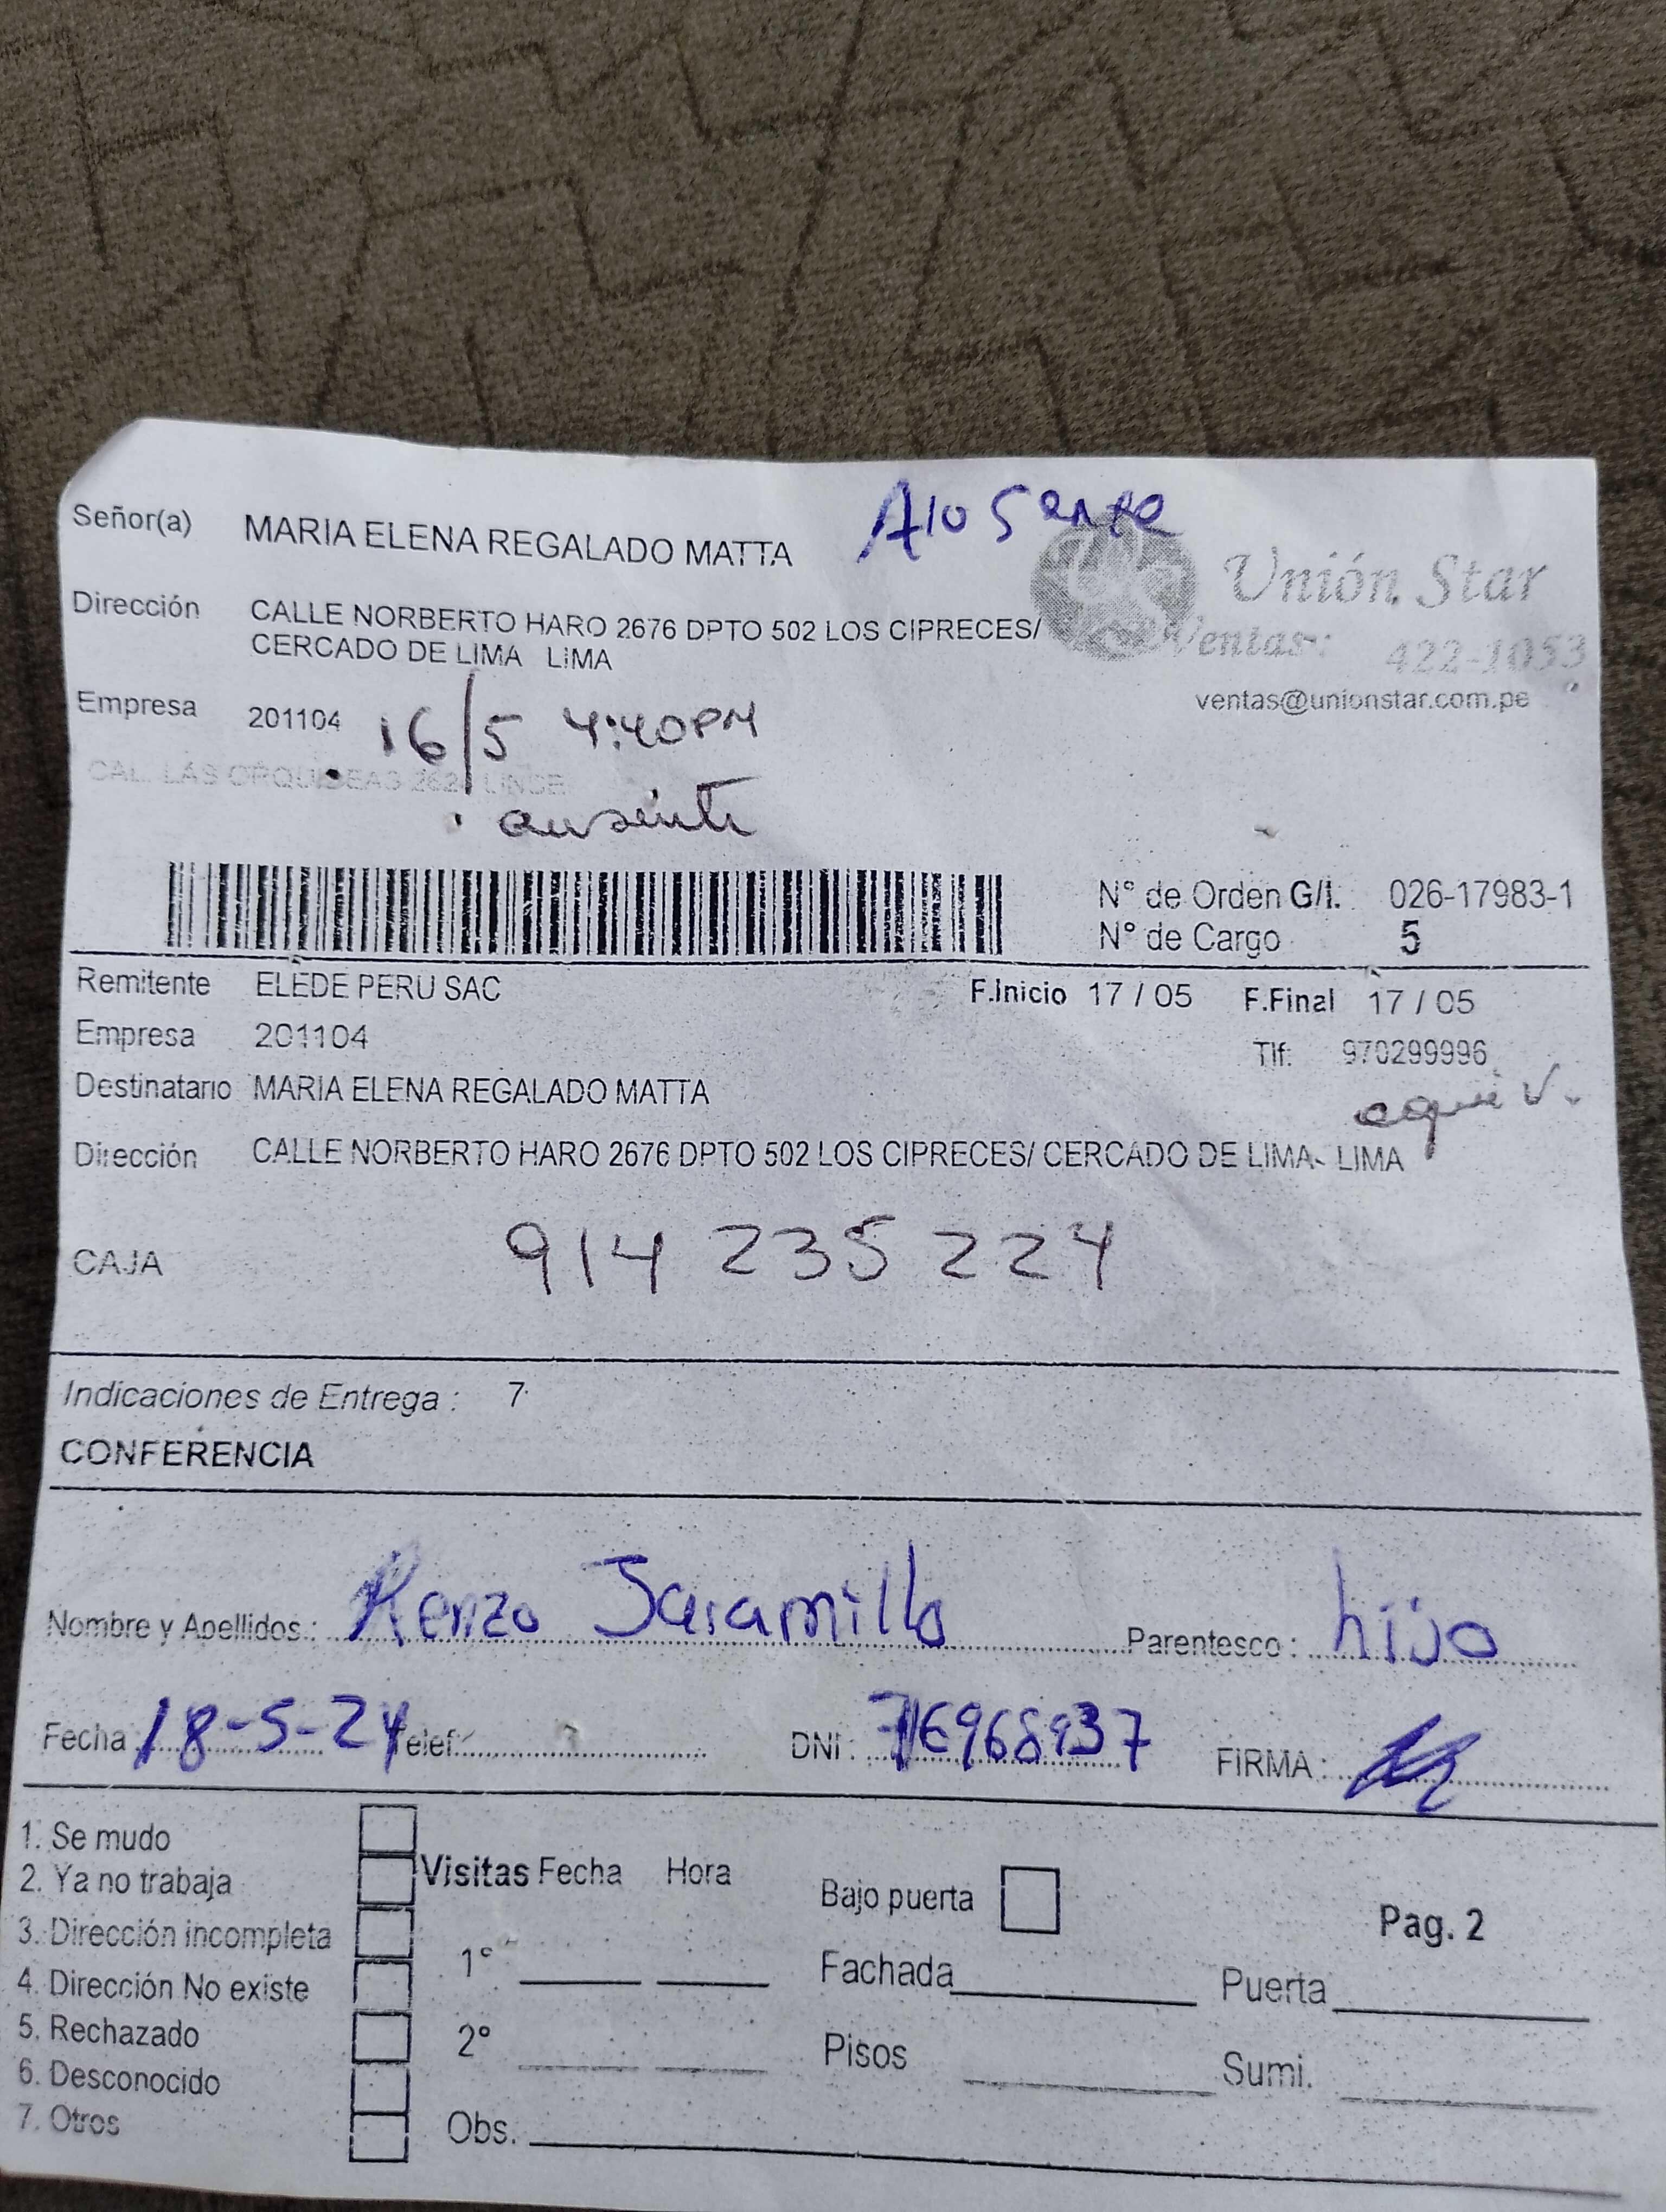 Señor(a) MARIA ELENA REGALADO MATTA
Unión Star
Dirección CALLE NORBERTO HARO 2676 DPTO 502 LOS CIPRECES/
CERCADO DE LIMA LIMA
Ventas: 422-1053
ventas@unionstar.com.pe
Empresa 201104 16/5 4:40PM
CAL. LAS ORQUIDEAS 262 LINCE
ausente
N° de Orden G/I. 026-17983-1
N° de Cargo 5
Remitente ELEDE PERU SAC F.Inicio 17 / 05 F.Final 17 / 05
Empresa 201104 Tlf: 970299996
equiv.
Destinatario MARIA ELENA REGALADO MATTA
Dirección CALLE NORBERTO HARO 2676 DPTO 502 LOS CIPRECES/ CERCADO DE LIMA- LIMA
CAJA 914 235 224
Indicaciones de Entrega : 7
CONFERENCIA
Nombre y Apellidos : Renzo Jaramillo Parentesco : hijo
Fecha 18-5-24 Telef: DNI : FIRMA :
1. Se mudo
2. Ya no trabaja
3. Dirección incompleta
4. Dirección No existe
5. Rechazado
6. Desconocido
7. Otros
Visitas Fecha Hora
1°
2°
Obs.
Bajo puerta
Fachada
Pisos
Pag. 2
Puerta
Sumi.